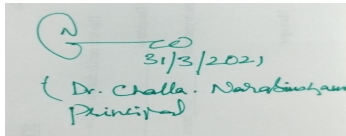 31/3/2021
(Dr. Challa. Narasimham
Principal